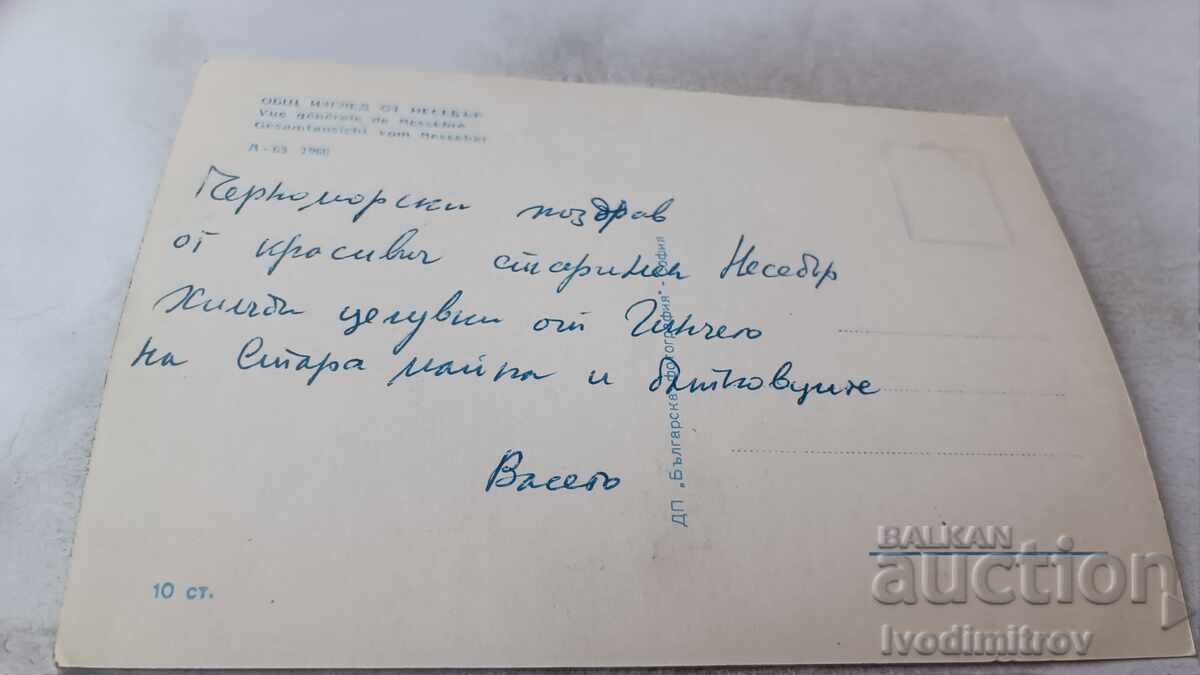 ОБЩ ИЗГЛЕД ОТ НЕСЕБЪР
Vue générale de Nessèbre
Gesamtansicht vom Nessebar
Л-63 1960
Черноморски поздрав
от красивия старинен Несебър
Хиляди целувки от Гинчето
на Стара майка и батковците
Васето
ДП „Българска фотография" - София
10 ст.
BALKAN
auction
Ivodimitrov